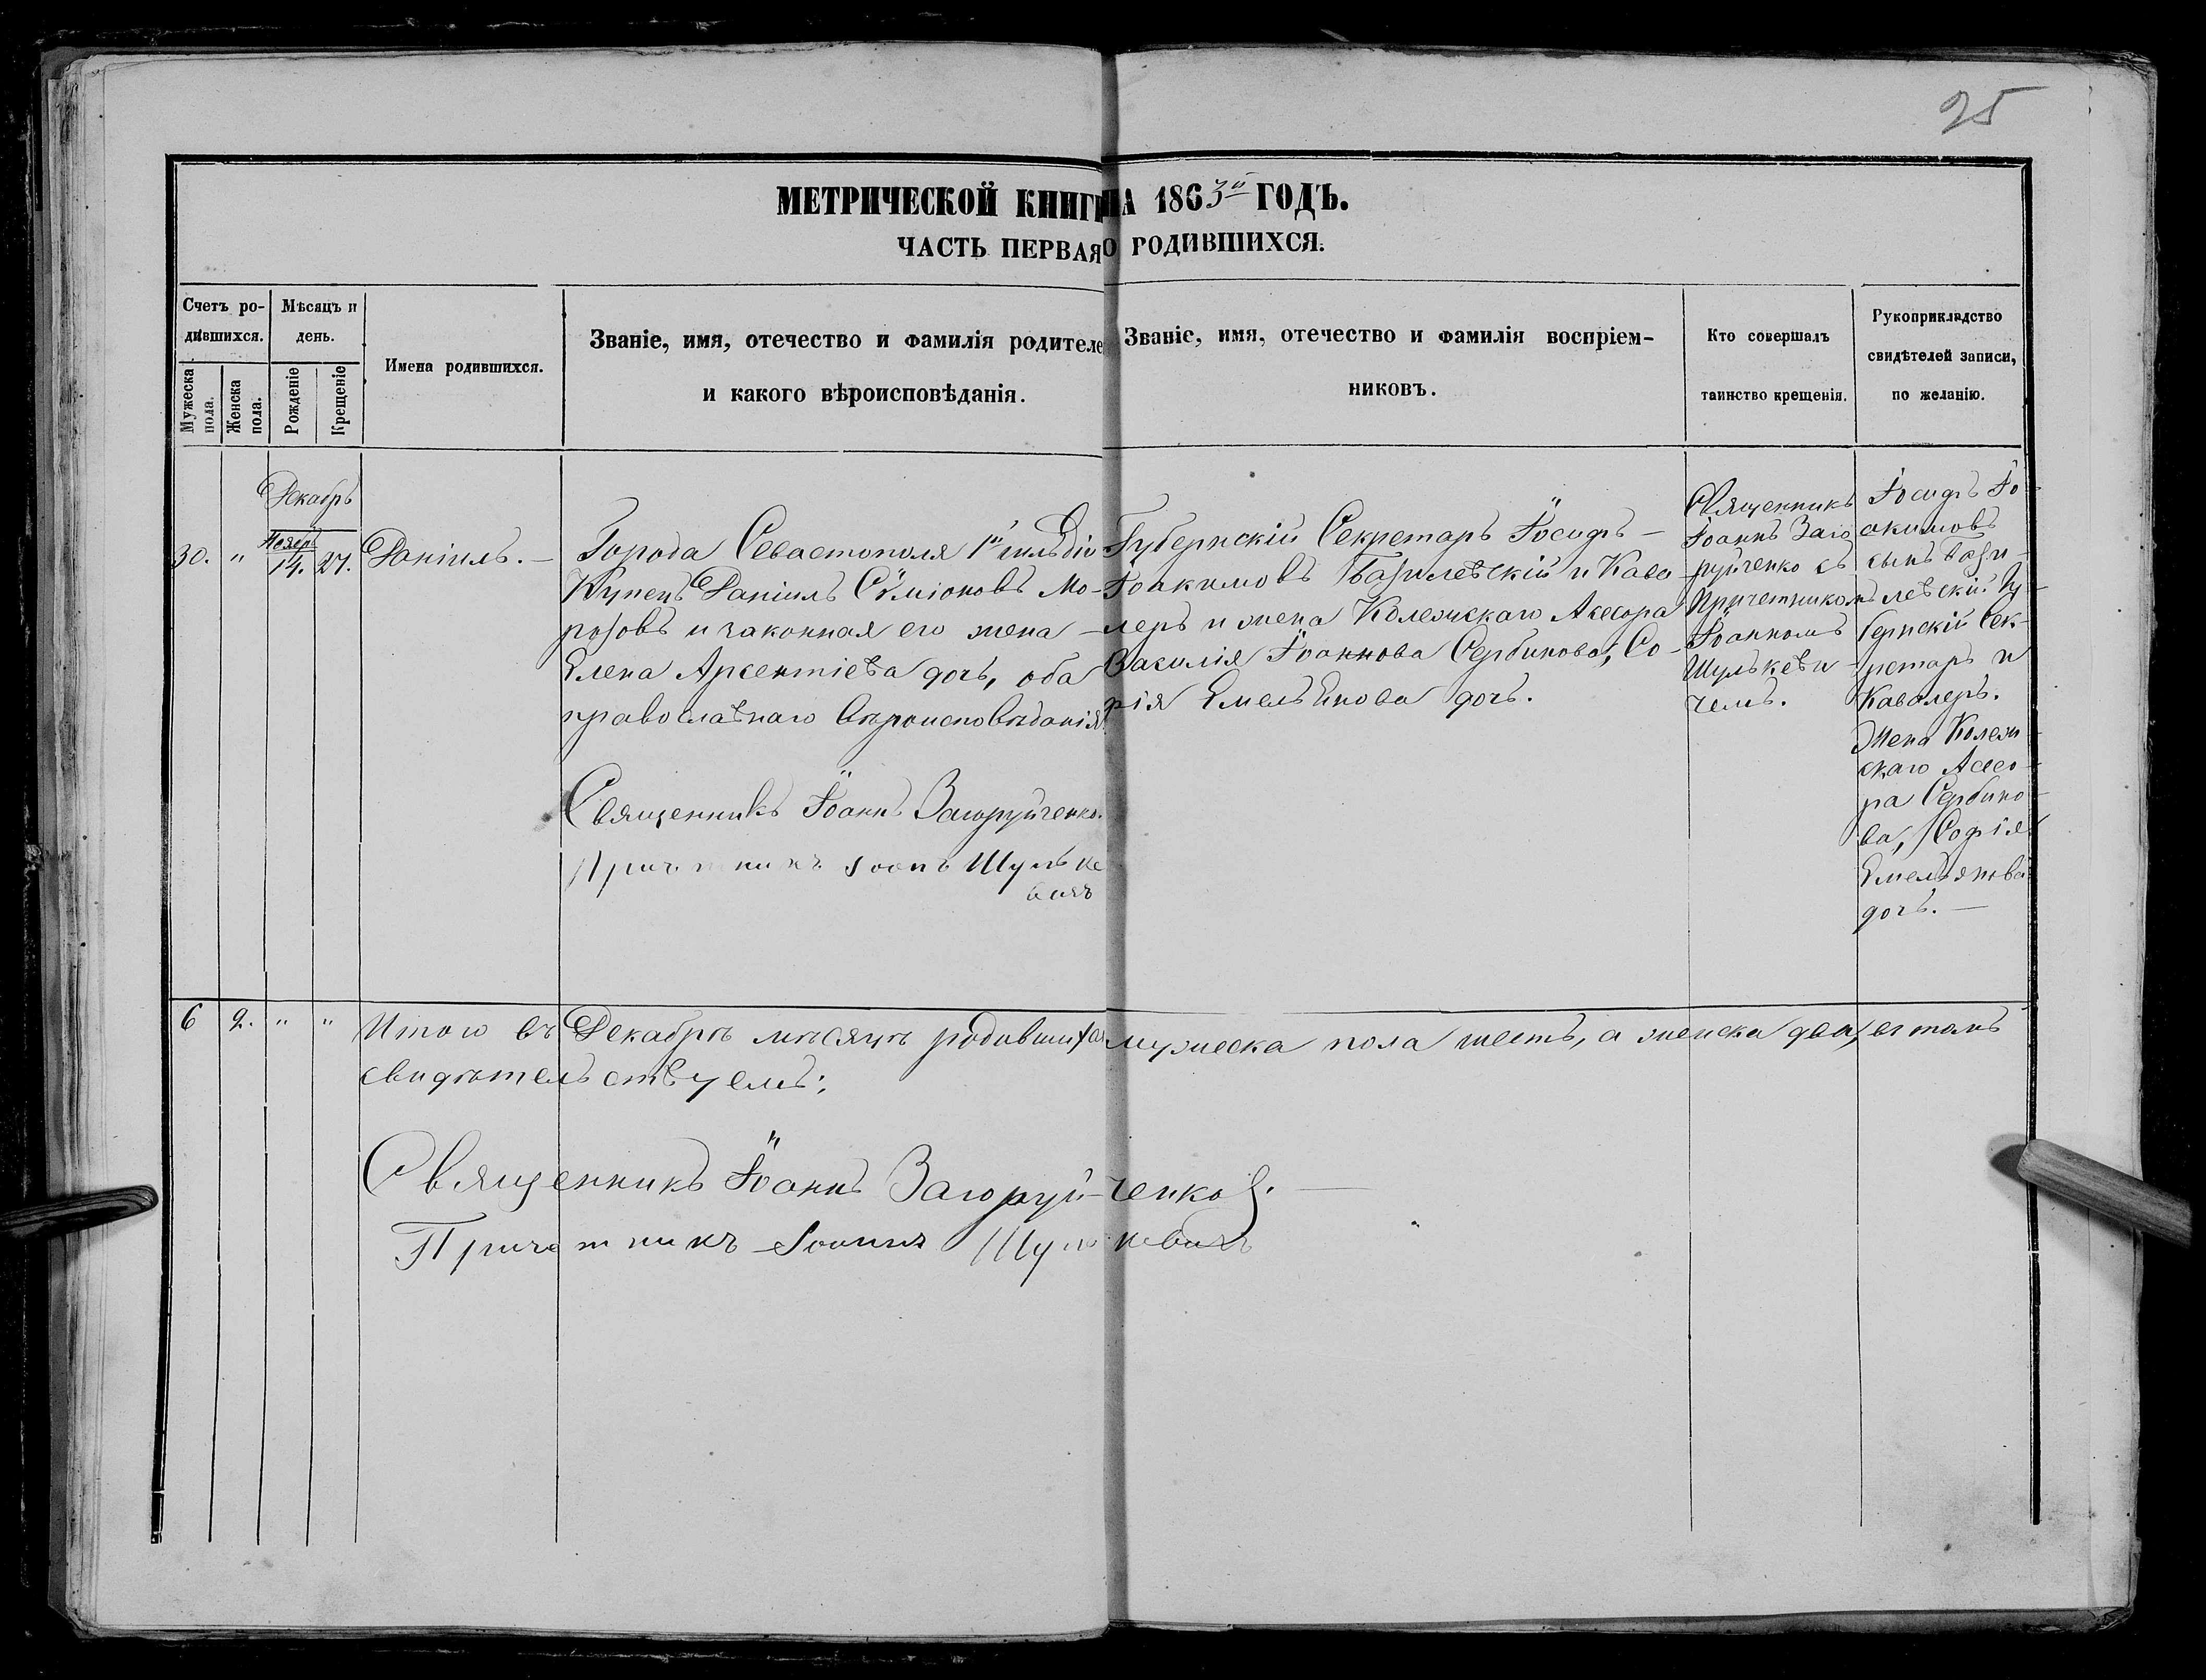 25
МЕТРИЧЕСКОЙ КНИГИ НА 1863й ГОДЪ.
ЧАСТЬ ПЕРВАЯ О РОДИВШИХСЯ.
Счетъ ро-
дившихся.
Мужеска пола.
Женска пола.
Мѣсяцъ и
день.
Рожденіе
Крещеніе
Имена родившихся.
Званіе, имя, отечество и фамилія родителе
и какого вѣроисповѣданія.
Званіе, имя, отечество и фамилія воспріем-
никовъ.
Кто совершалъ
таинство крещенія.
Рукоприкладство
свидѣтелей записи,
по желанію.
Декабрь
30. " Ноябрь 14. 27. Даніилъ. —
Города Севастополя 1й гильдіи
Купецъ Даніилъ Сѵміоновъ Мо-
розовъ и законная его жена —
Елена Арсентіева дочь, оба
православнаго вѣроисповѣданія.
Священникъ Іоаннъ Загоруйченко.
Причетникъ Іоанъ Шульке
вичъ
Губернскій Секретарь Іосифъ —
Іоакимовъ Базилевскій и Кава-
леръ и жена Колежскаго Асесора
Василія Іоаннова Сербинова, Со-
фія Емельянова дочь.
Священникъ
Іоаннъ Заго
руйченко съ
Причетникомъ
Іоанномъ
Шулькеви-
чемъ.
Іосифъ Іо-
акимовъ
сынъ Бази-
левскій Гу-
бернскій Сек-
ретарь и
Кавалеръ.
Жена Колеж-
скаго Асесо-
ра Сербино-
ва, Софія
Емельянова
дочь. —
6 2. " " Итого въ Декабрѣ мѣсяцѣ родившихся мужеска пола шесть, а женска два, въ томъ
свидѣтельствуемъ:
Священникъ Іоаннъ Загоруй-ченко. —
Причетникъ Іоаннъ Шулькевичъ